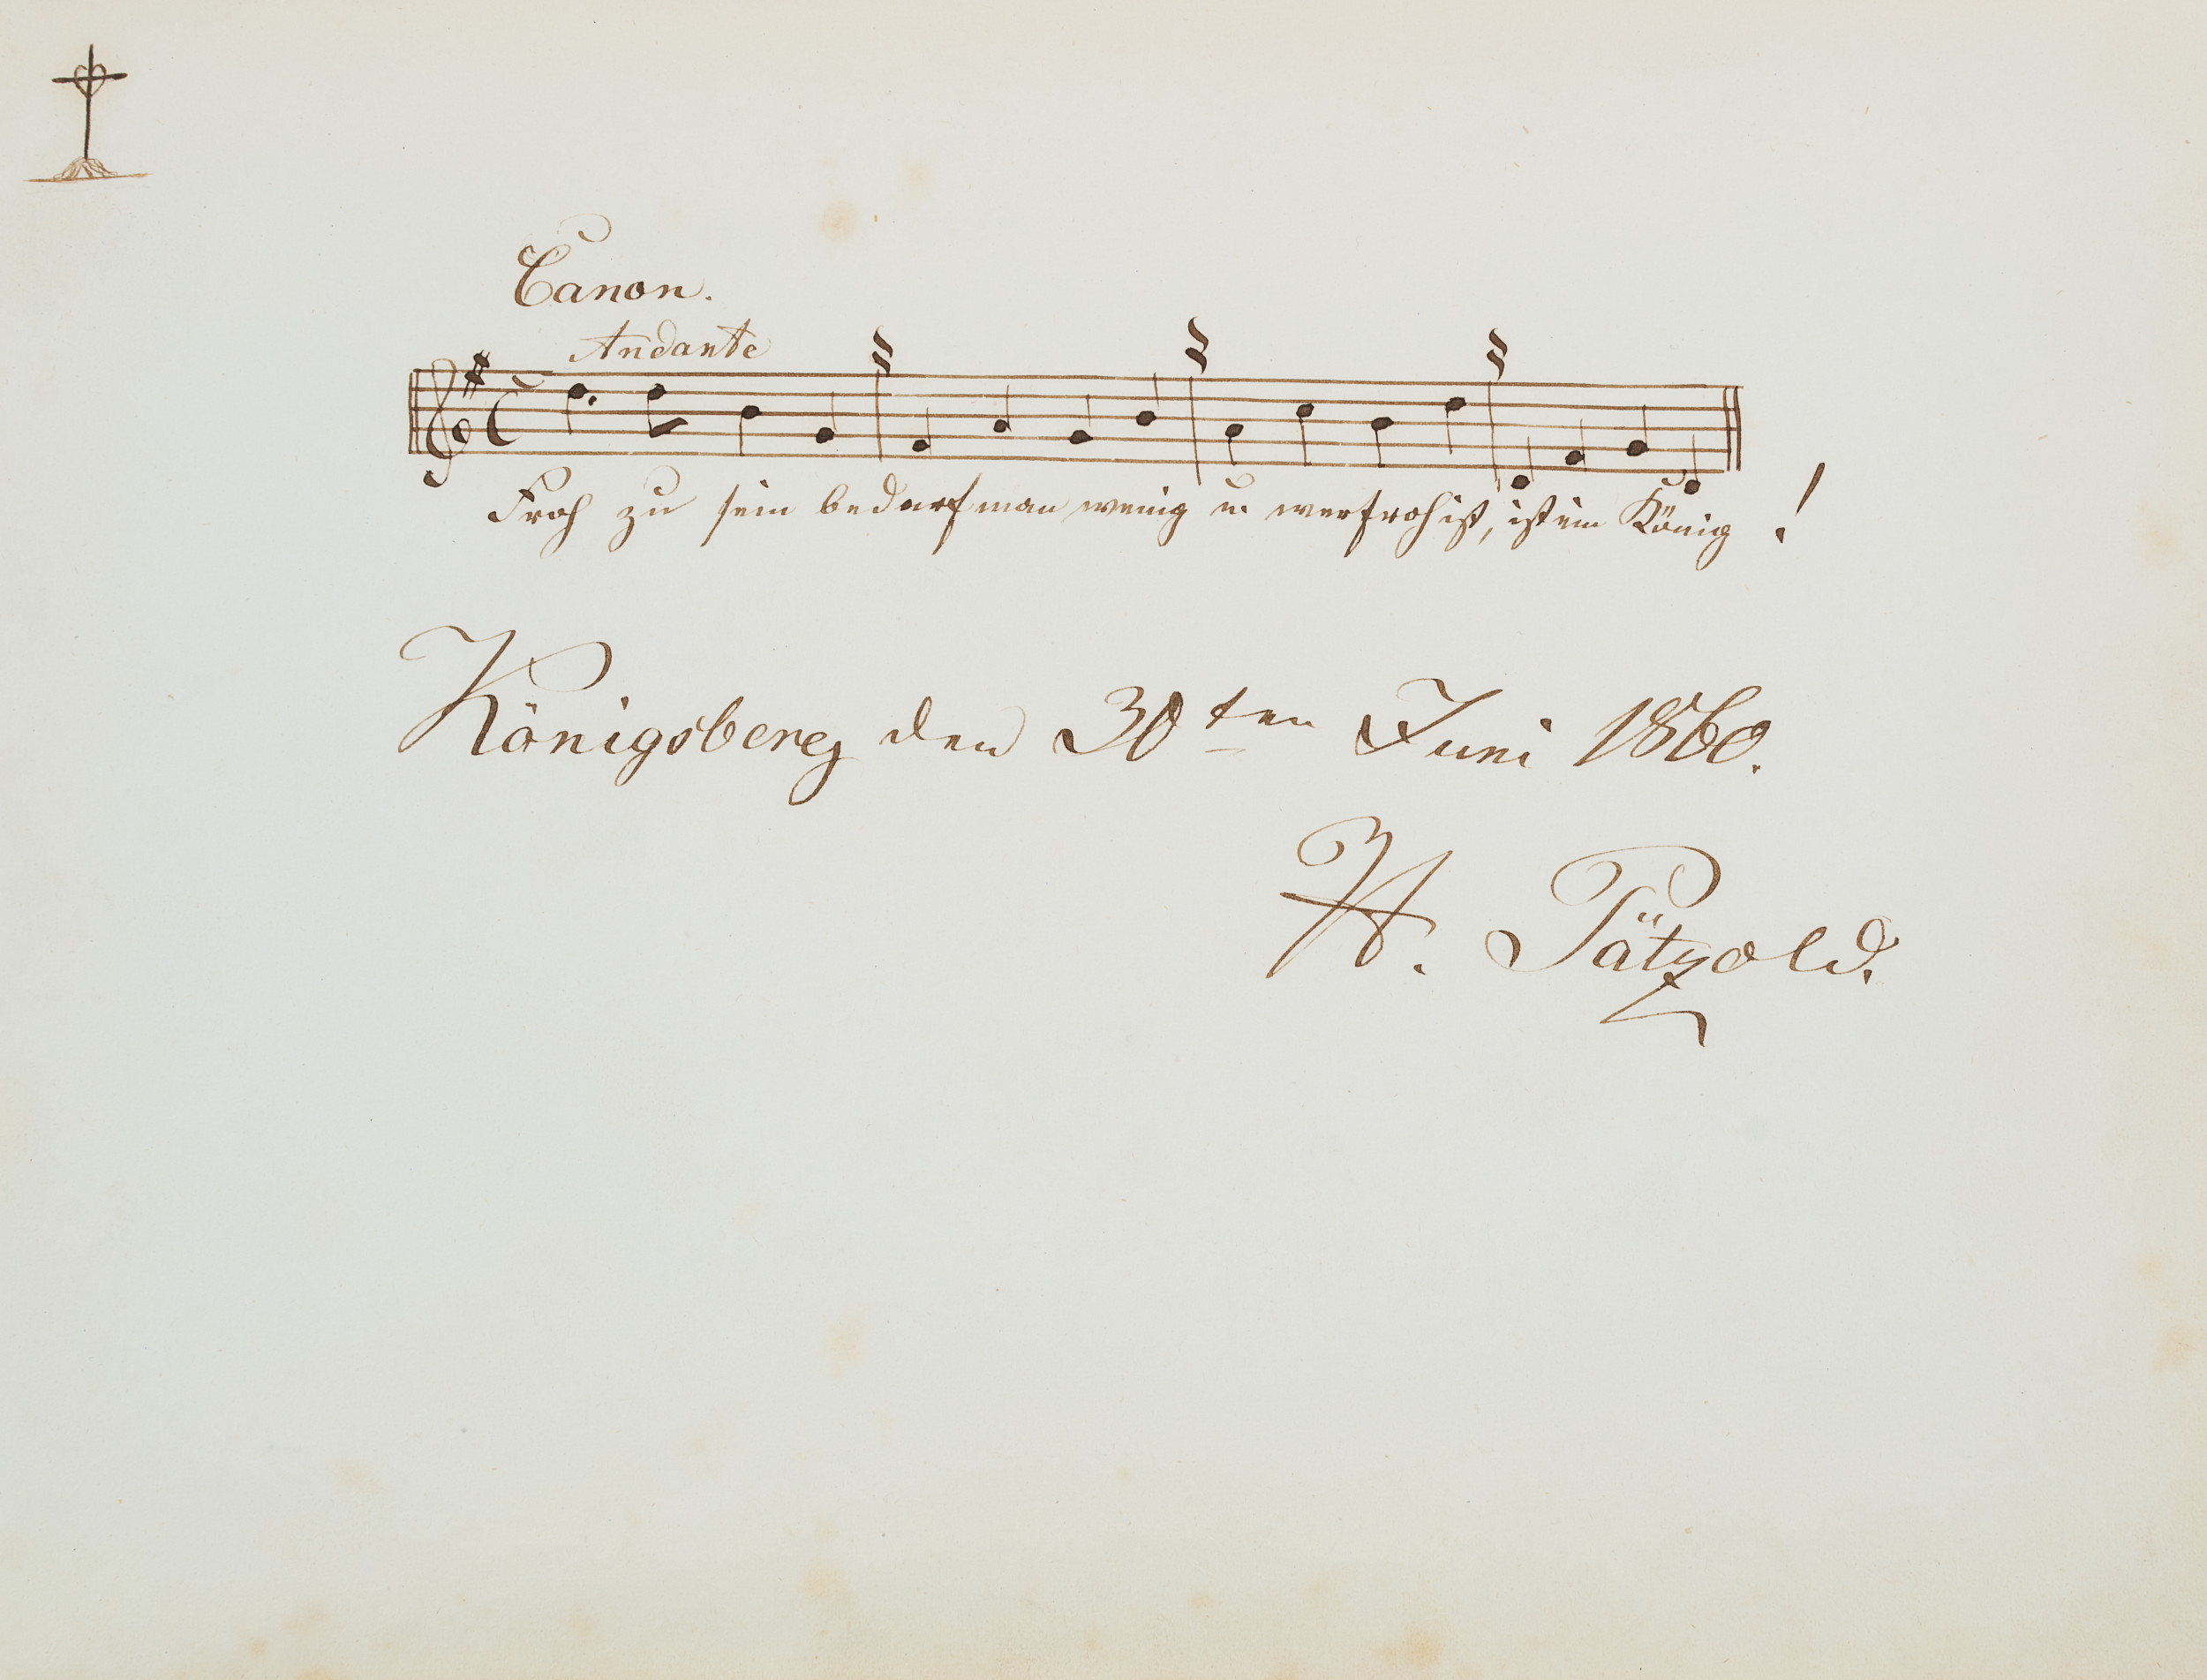 Canon.
Andante
Froh zu sein bedarf man wenig u. wer froh ist, ist ein König!
Königsberg den 30ten Juni 1860.
H. Pätzold.